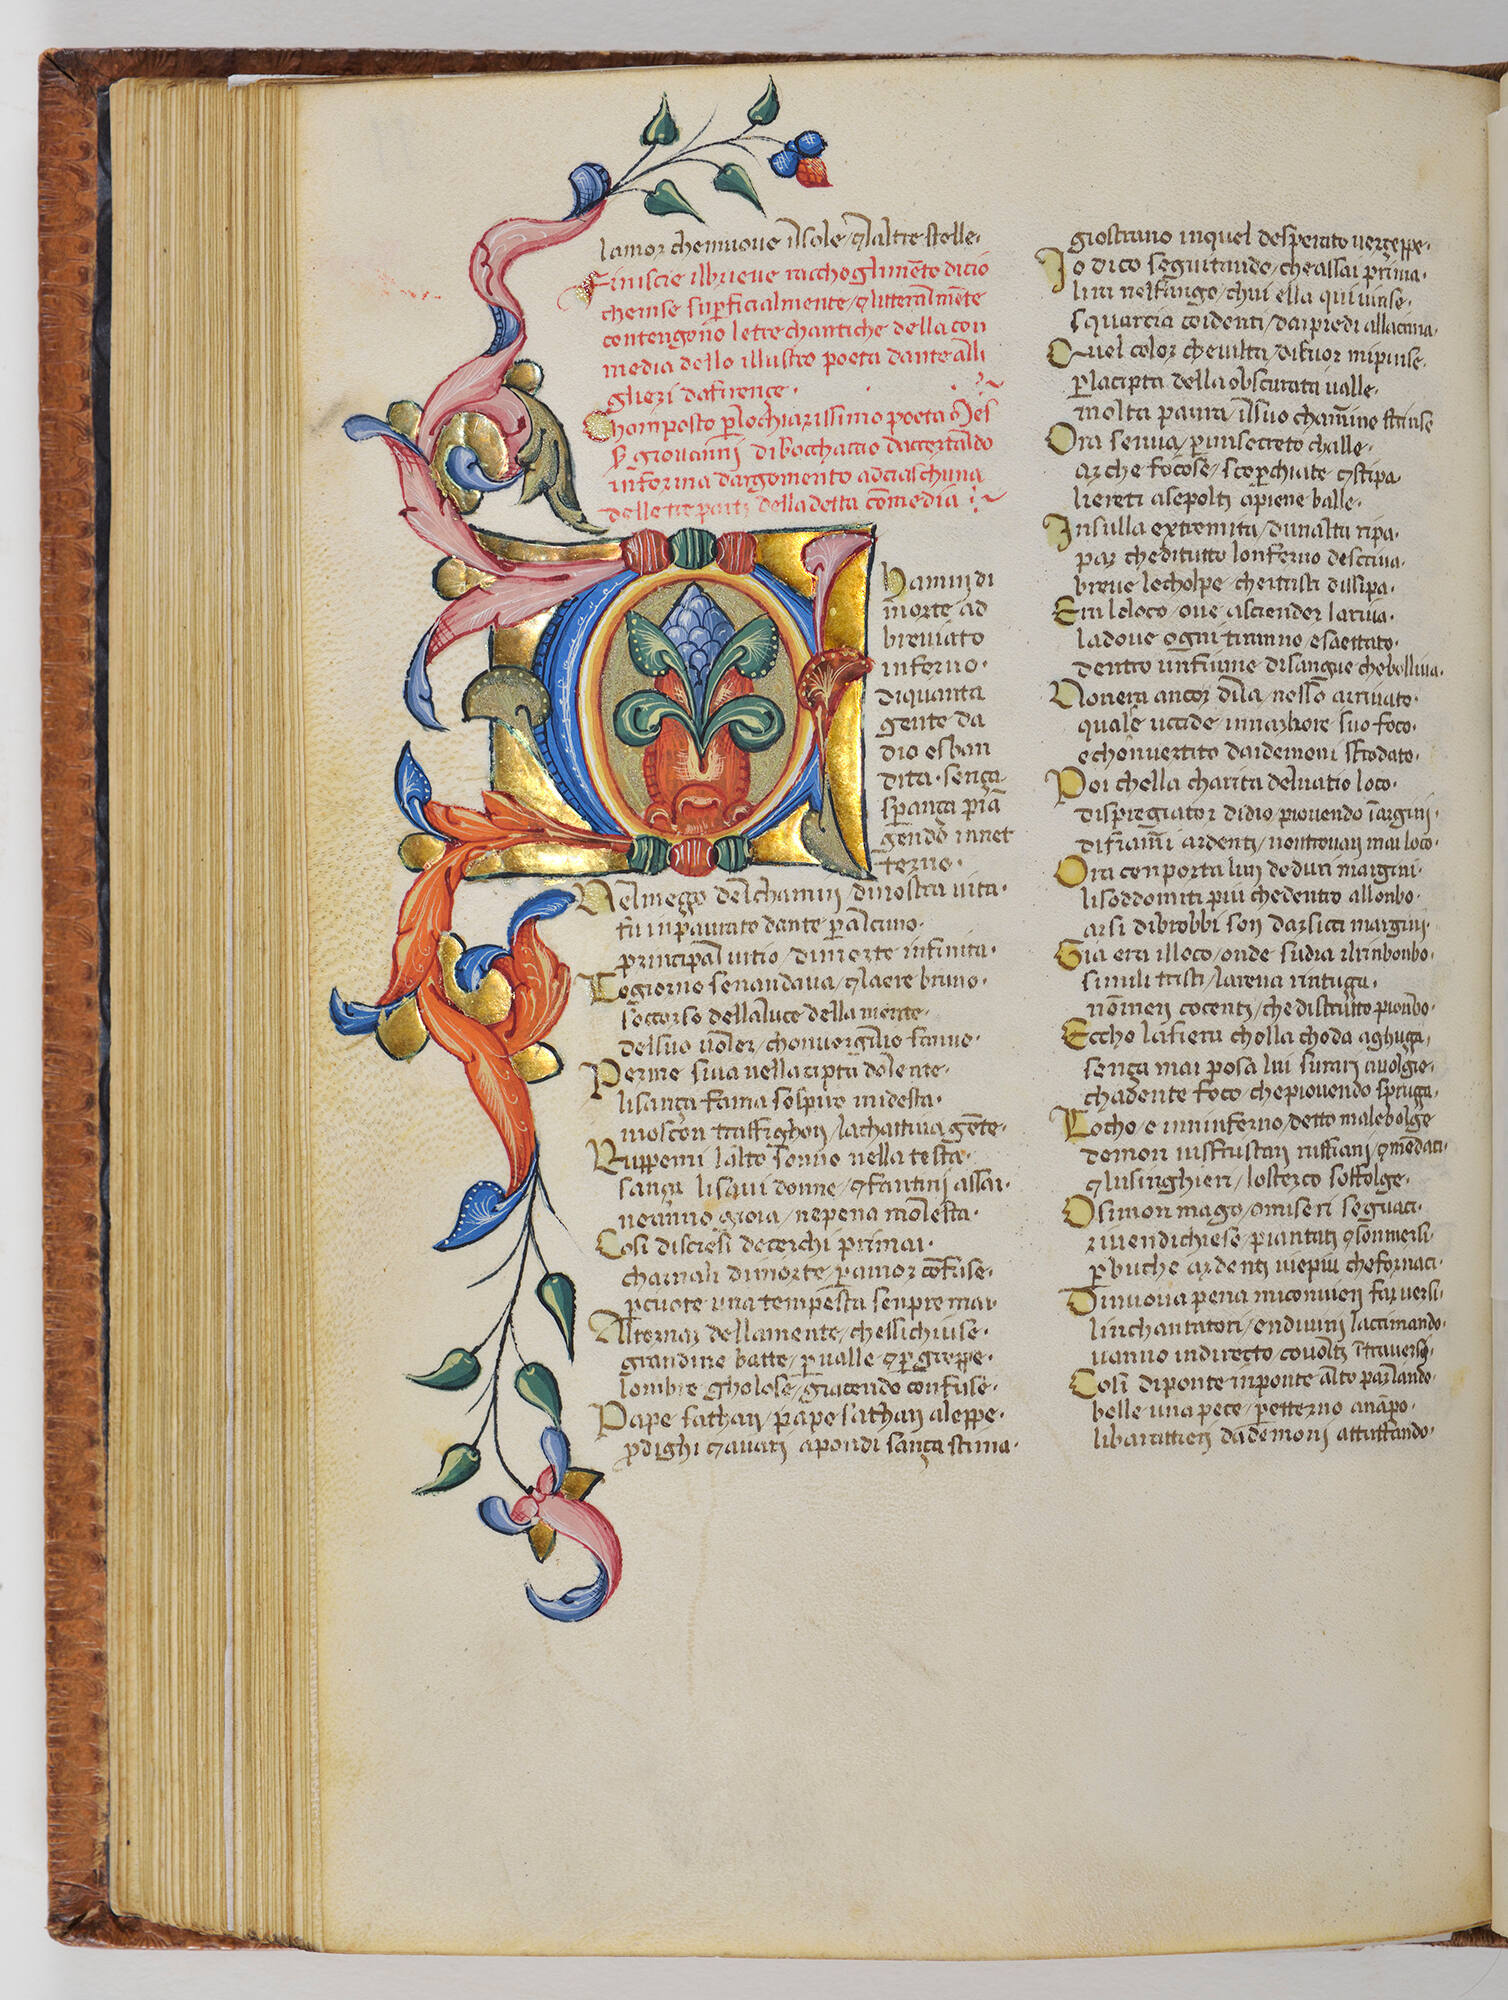 lamor che muove ilsole/ ⁊laltre stelle·
Finiscie ilbrieve racchoglimēto dicio
cheinse supficialmente/ ⁊litteralmēte
contengono letre chantiche della con
media dello illustro poeta dante alli
ghieri dafirençe·
Chomposto p lo chiarissimo poeta Mes
S giovannj dibocchaccio daccertaldo
informa dargomento adciaschuna
delle tre partj della detta cōmedia
Chamin di
morte ad
breviato
inferno·
diquanta
gente da
dio esban
dita· sença
sperança piā
gendo innet
terno·
Nelmeço delchamin/ dinostra vita·
fu inpaurato dante p alcuno·
principal vitio/ dimorte infinita·
Logiorno senandava/ ⁊laere bruno·
soccorso della luce della mente·
delsuo voler/ chonvergilio fanne·
Perme siva nella ciptà dolente·
lisança fama sospiro midesta·
moscon traffighon/ lachattiva gēte·
Ruppemi lalto sonno nella testa·
sança lisavi donne/ ⁊fantinj assai·
neanno gioia/ nepena molesta·
Cosi disciesi decerchi primai·
charnali dimorte/ p amor cōfuse·
pcuote una tempesta senpre mai·
Alternar dellamente/ chessichiuse·
grandine batte/ p valle ⁊p greppe·
lombre gholose/ giacendo confuse·
Pape sathan/ pape sathan aleppe·
pdighi ⁊avari apondi sança stima·
giostrano inquel desperato vergeppe·
Io dico seguitando/ che assai prima·
lira nelfango/ chui ella quivinse·
squarcia coidenti/ daipiedi allacima·
Quel color cheviltà/ difuor mipinse·
p lacipta della obscurata valle·
molta paura/ ilsuo chāmino strinse
Ora senva/ p un secreto challe·
arche focose/ scopchiate ⁊stipa
li eretici asepoltj apiene balle·
Insulla extremita/ dunalta ripa·
par cheditutto lonferno descriva·
breve lecholpe/ cheitristi dissipa·
Era loloco/ ove ascender lariva·
ladove ogni tiranno esaettato·
dentro unfiume disangue chebolliva·
Nonera ancor dila/ nesso arrivato·
quale uccide innarbore suo foco·
echonvertito daidemoni sfrodato·
Poi chella charita delnatio loco·
dispregiator didio/ piovendo īargini·
difiāme ardentj/ nontrovan mai loco·
Ora cenporta lun deduri margini·
lisoddomiti piu chedentro allonbo·
arsi dibrobbi son darsicci margini·
Gia era illoco/ onde sudia ilrinbonbo·
simili tristi/ larena rintuga·
nōmen cocentj/ che distrutto pionbo·
Eccho lafiera cholla choda aghuça·
sença mai posa lui sunaj avolgie·
chadente foco chepiovendo spruça·
Locho/ e inninferno/ detto malebolge
demon visfrustan ruffiani/ ⁊mēdaci·
⁊lusinghieri/ losterco soffolge·
O simon mago/ omiseri seguaci·
rivendichiese/ piantatj ⁊sommersi
p buche ardentj viepiu chefornaci·
Dinuova pena miconvien farversi·
linchantatori/ endivinj lacrimando·
vanno indirecto/ covoltj ītraversi·
Cosi diponte inponte alto parlando·
bolle una pece/ petterno anāpo·
libarattierj dademonj attuffando·